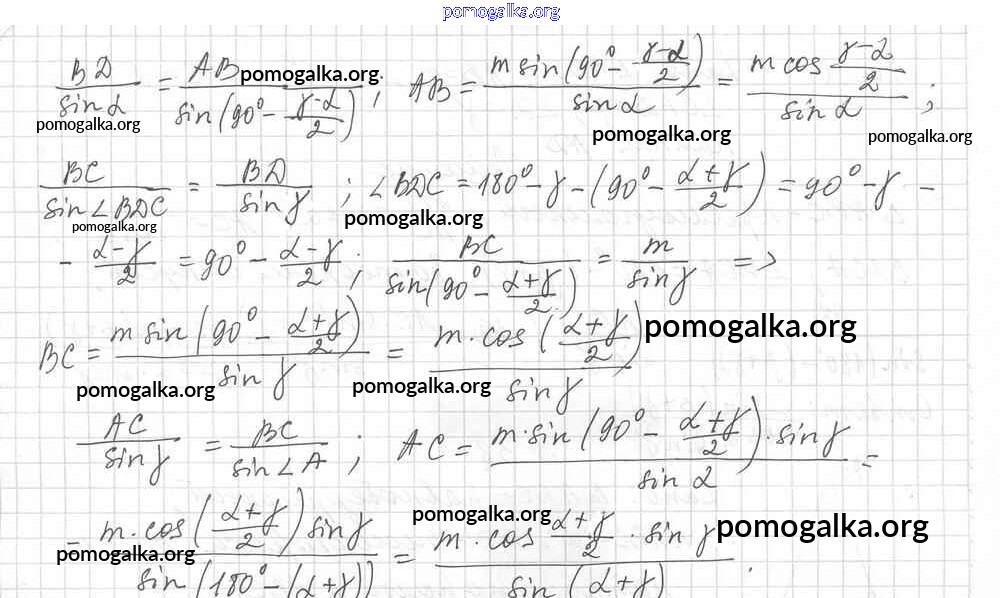 pomogalka.org
BD/sin α = AB/sin(90° − (γ−α)/2); AB = m sin(90° − (γ−α)/2)/sin α = m cos (γ−α)/2/sin α ;
pomogalka.org
pomogalka.org
pomogalka.org
pomogalka.org
BC/sin∠BDC = BD/sin γ ; ∠BDC = 180° − γ − (90° − (α+γ)/2) = 90° − γ −
pomogalka.org
pomogalka.org
− (α−γ)/2 = 90° − (α−γ)/2 ; BC/sin(90° − (α+γ)/2) = m/sin γ =>
BC = m sin(90° − (α+γ)/2)/sin γ = m · cos((α+γ)/2)/sin γ
pomogalka.org
pomogalka.org
pomogalka.org
AC/sin γ = BC/sin∠A ; AC = m·sin(90° − (α+γ)/2)·sin γ/sin α =
= m · cos((α+γ)/2) sin γ/sin(180° − (α+γ)) = m · cos (α+γ)/2 · sin γ/sin(α+γ) .
pomogalka.org
pomogalka.org
pomogalka.org